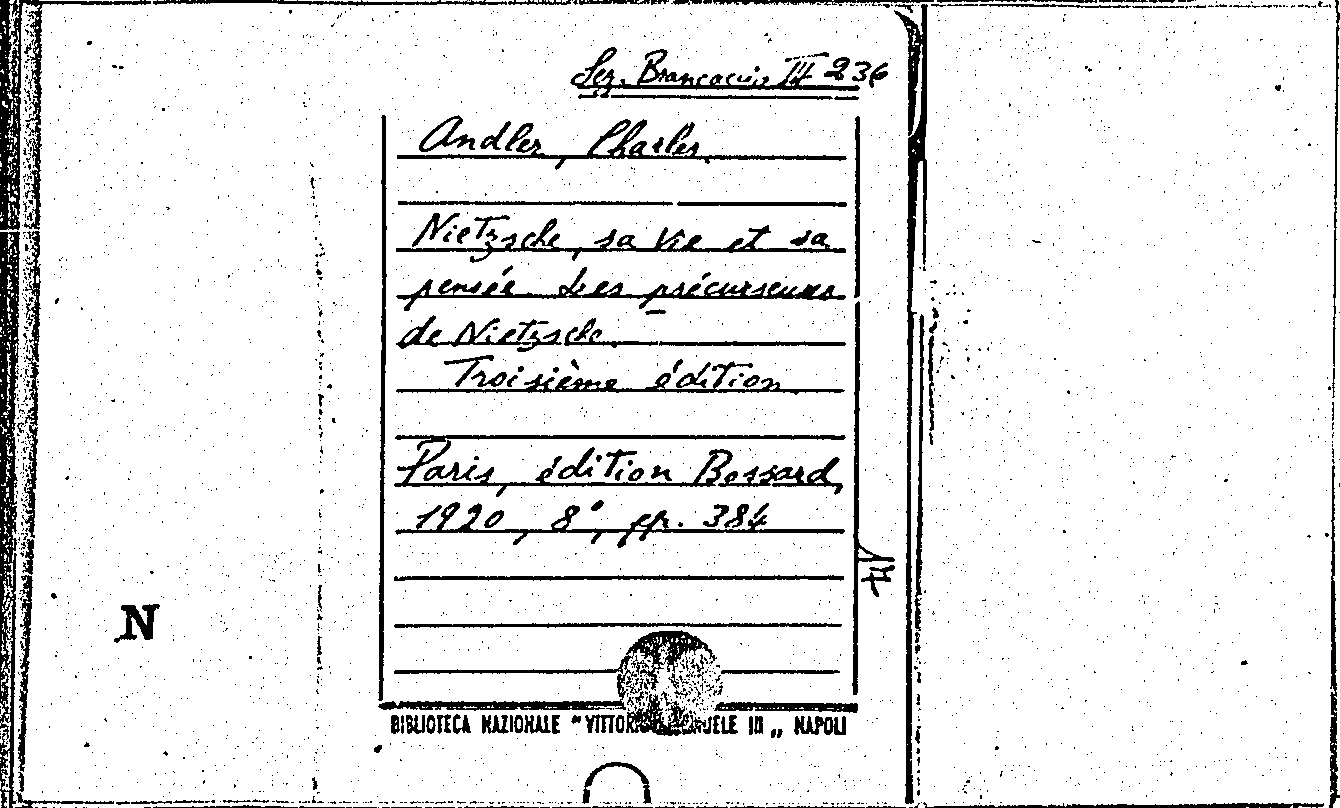 Sez. Brancaccio III 236
Andler, Charles.
Nietzsche, sa vie et sa
pensée. Les précurseurs
de Nietzsche.
Troisième édition
Paris, édition Bossard,
1920, 8°, pp. 384
N
BIBLIOTECA NAZIONALE " VITTORIO EMANUELE III „ NAPOLI